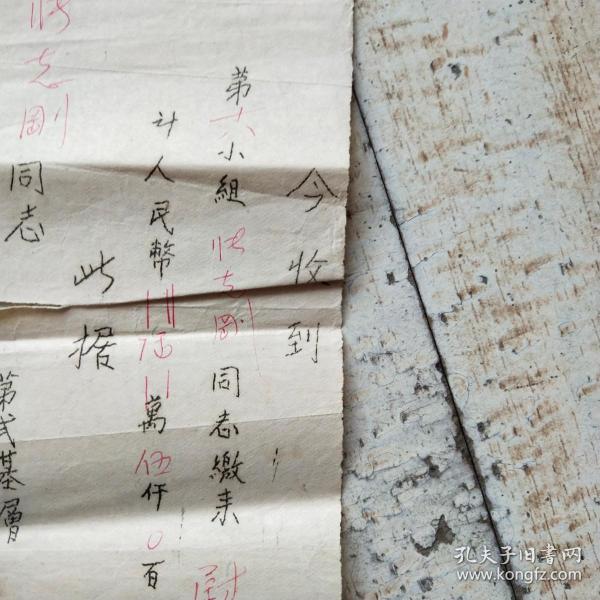 今收到
第六小組 張志剛 同志繳来
计人民幣 萬伍仟0百
此据
張志剛同志
第弍基層
孔夫子旧书网
www.kongfz.com